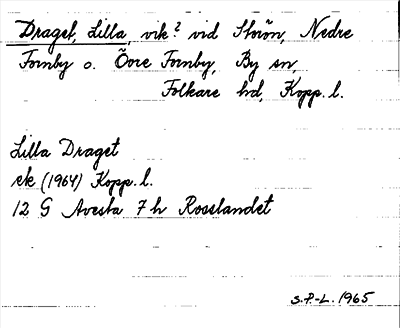 Draget, Lilla, vik? vid Storön, Nedre
Fornby o. Övre Fornby, By sn,
Folkare hd, Kopp. l.
Lilla Draget
ek (1964) Kopp. l.
12 G Avesta 7 h Rosslandet
S.P.-L. 1965